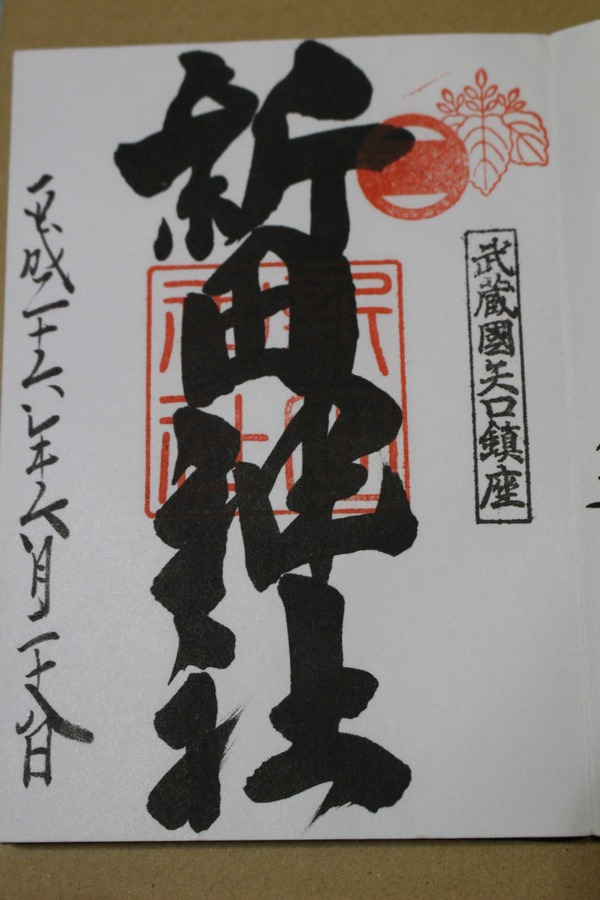 武蔵國矢口鎮座
新田神社
新田
神社
平成二十六年六月二十八日